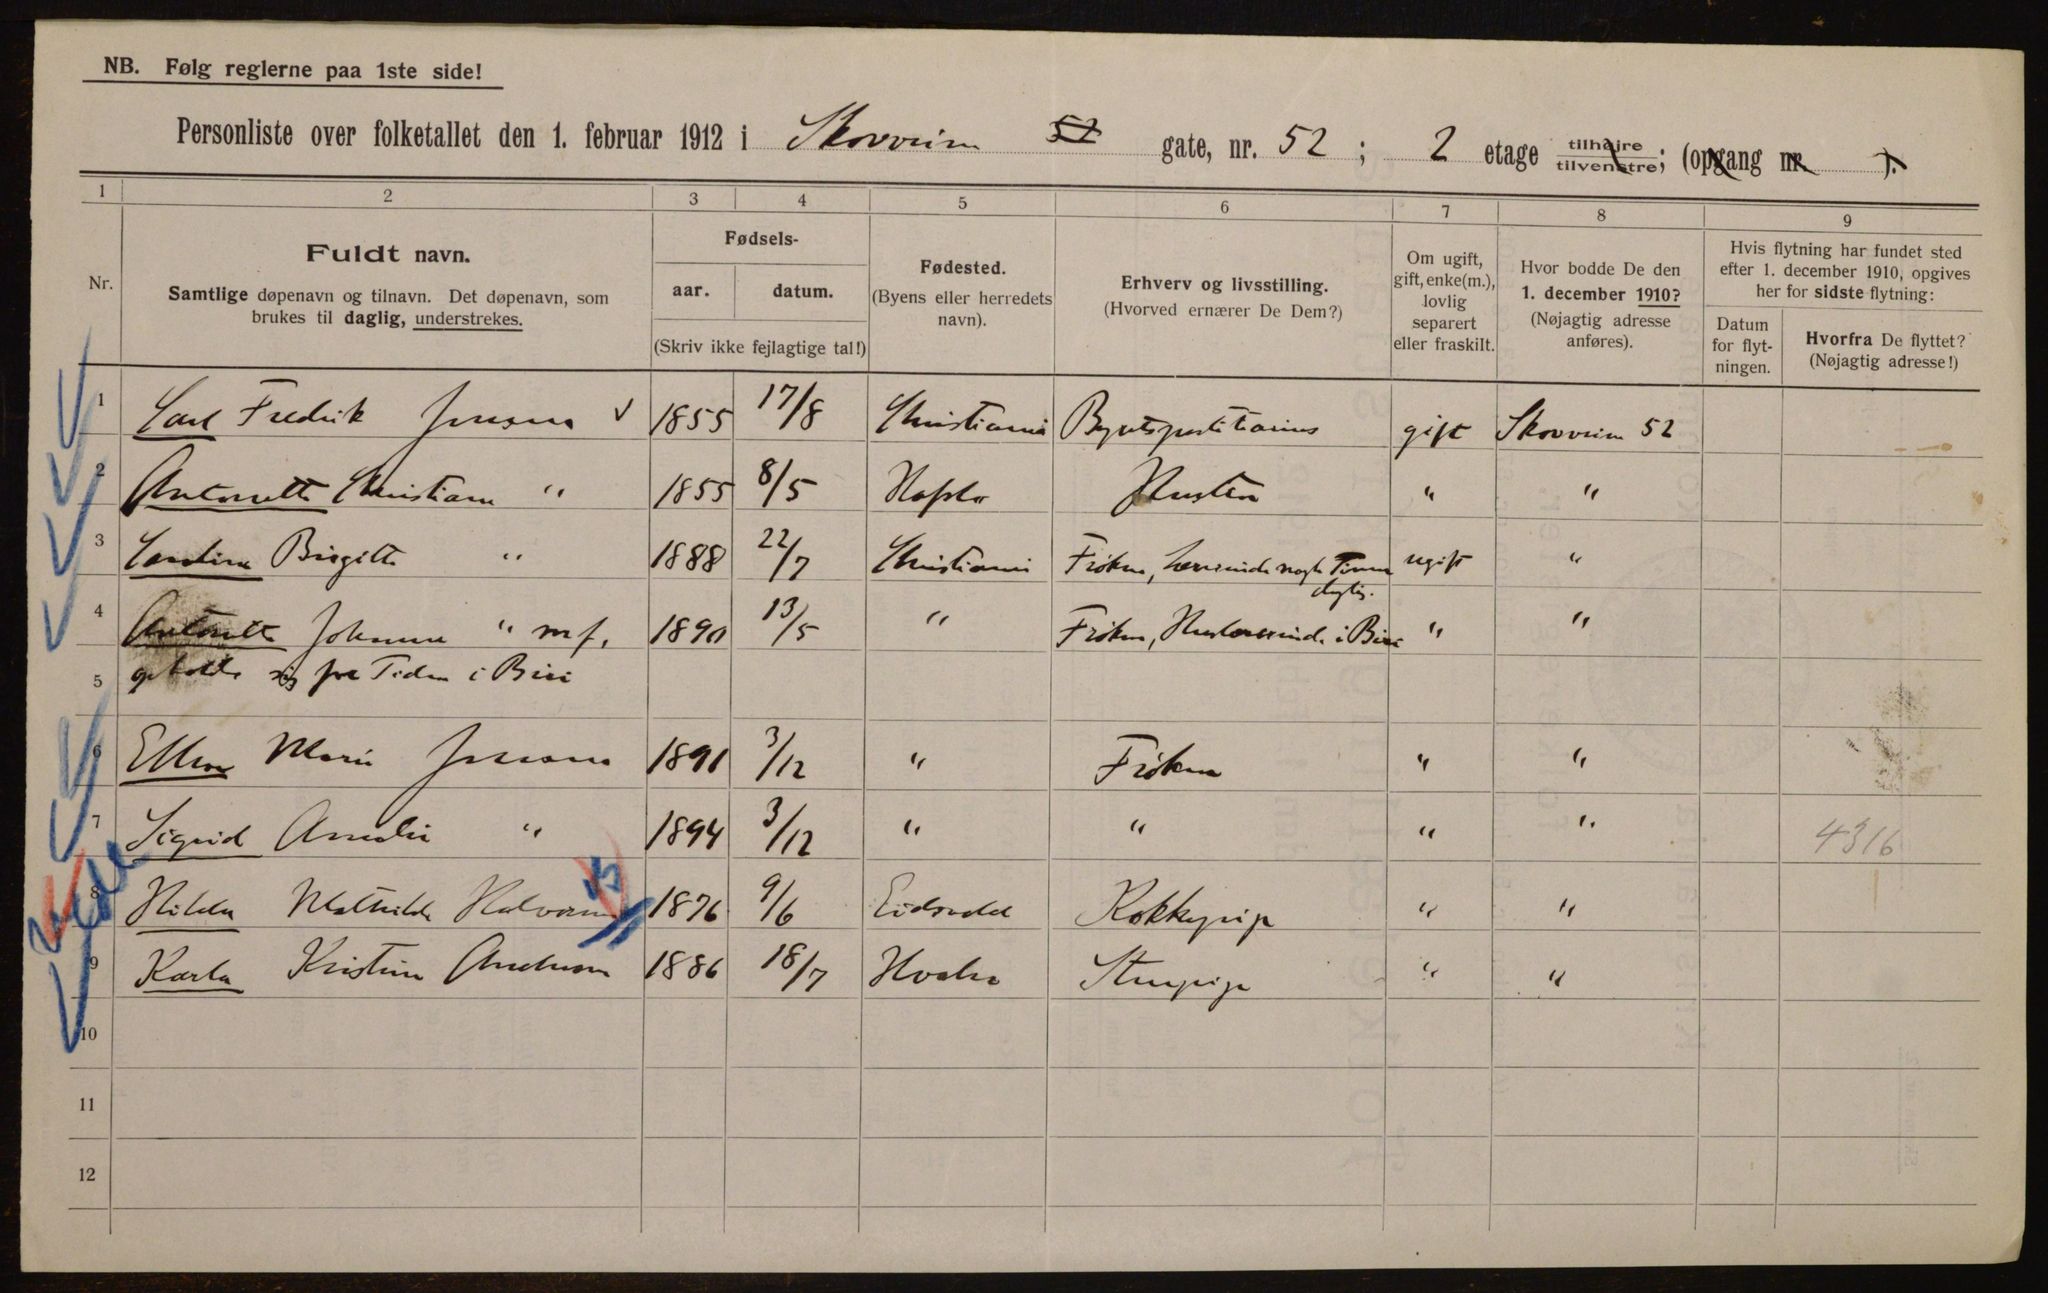 NB. Følg reglerne paa 1ste side!
Personliste over folketallet den 1. februar 1912 i Skovveien 52 gate, nr. 52 ; 2 etage tilhøjre tilvenstre; (opgang nr. ).
1 2 3 4 5 6 7 8 9
Nr.
Fuldt navn.
Samtlige døpenavn og tilnavn. Det døpenavn, som
brukes til daglig, understrekes.
Fødsels-
aar. datum.
(Skriv ikke fejlagtige tal!)
Fødested.
(Byens eller herredets
navn).
Erhverv og livsstilling.
(Hvorved ernærer De Dem?)
Om ugift,
gift, enke(m.),
lovlig
separert
eller fraskilt.
Hvor bodde De den
1. december 1910?
(Nøjagtig adresse
anføres).
Hvis flytning har fundet sted
efter 1. december 1910, opgives
her for sidste flytning:
Datum
for flyt-
ningen.
Hvorfra De flyttet?
(Nøjagtig adresse!)
1 Carl Fredrik Jensen 1855 17/8 Christiania gift Skovveien 52
2 Antonette Christiane " 1855 8/5 Hafslo Hustru " "
3 Birgitte " 1888 22/7 Christiania Frøken, Lærerinde nogle Timer ugift "
daglig.
4 Antonette Johanne " m f. 1890 13/5 " Frøken, Huslærerinde i Biri " "
5 opholder sig for Tiden i Biri
6 Ellen Marie Jensen 1891 3/12 " Frøken " "
7 Sigrid Amalie " 1894 3/12 " " " " 4316
8 Hilda Mathilde Halvorsen 1876 9/6 Eidsvold Kokkepige " "
9 Karla Kristine Andersen 1886 18/7 Hvaler Stuepige " "
10
11
12